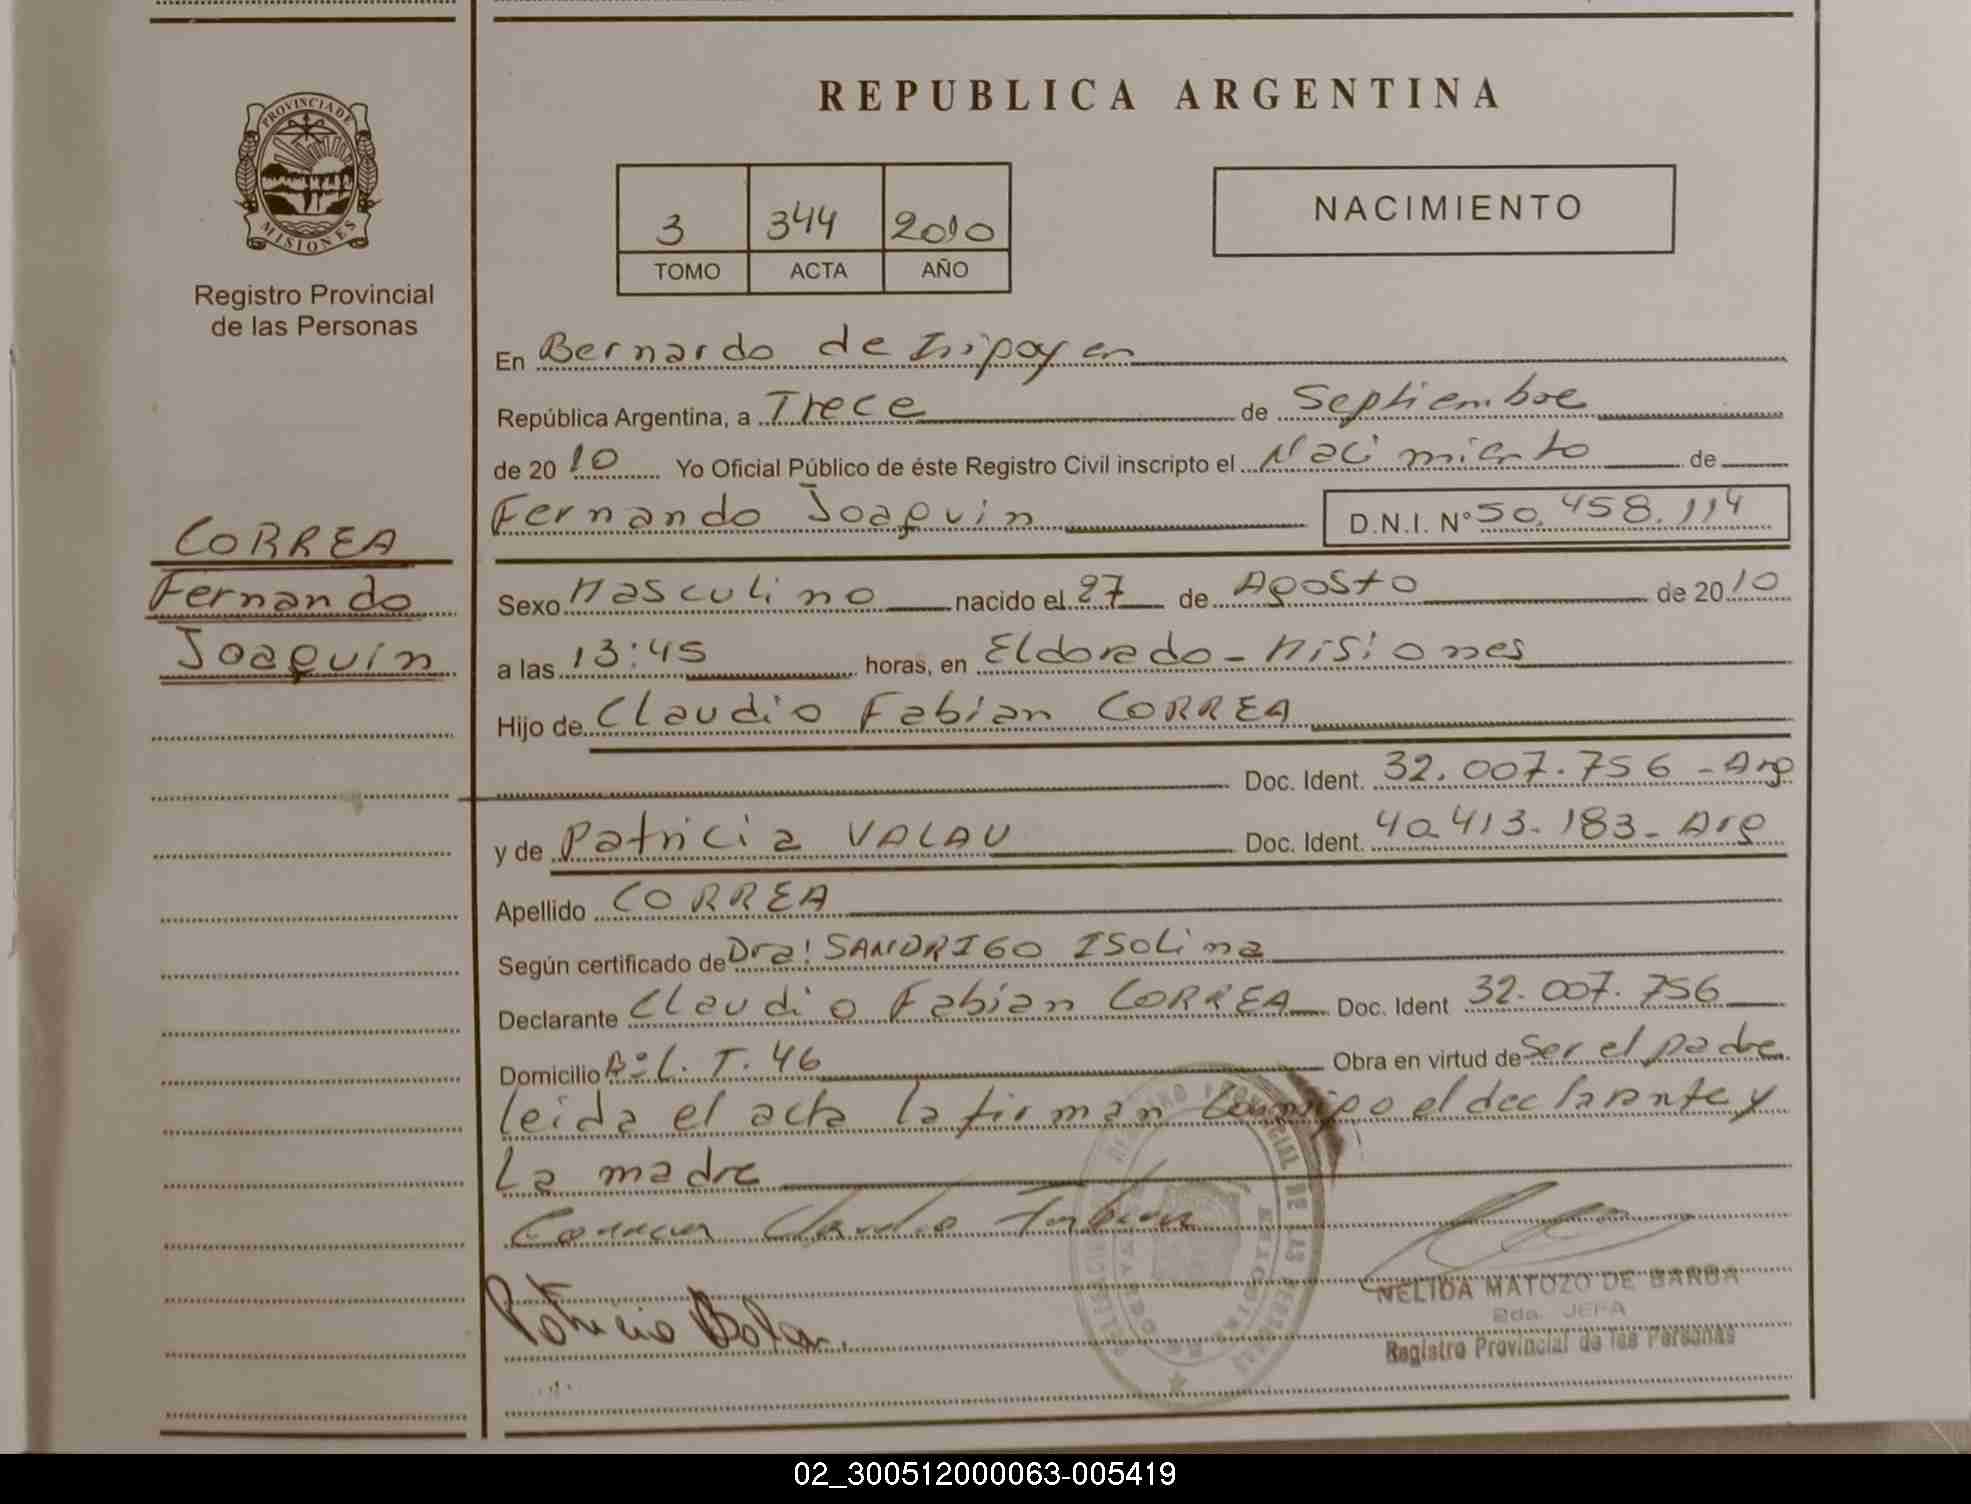 PROVINCIA DE
MISIONES
Registro Provincial
de las Personas
CORREA
Fernando
Joaquín
REPUBLICA ARGENTINA
3 344 2010
TOMO ACTA AÑO
NACIMIENTO
En Bernardo de Irigoyen
República Argentina, a Trece de Septiembre
de 2010 Yo Oficial Público de éste Registro Civil inscripto el Nacimiento de
Fernando Joaquín D.N.I. N° 50.458.114
Sexo Masculino nacido el 27 de Agosto de 2010
a las 13:45 horas, en Eldorado - Misiones
Hijo de Claudio Fabian CORREA
Doc. Ident. 32.007.756 - Arg
y de Patricia VALAU Doc. Ident. 40.413.183 - Arg
Apellido CORREA
Según certificado de Dra: SANDRIGO ISOLina
Declarante Claudio Fabian CORREA Doc. Ident 32.007.756
Domicilio B: L. T. 46 Obra en virtud de Ser el padre
leida el acta la firman conmigo el declarante y
La madre
Correa Claudio Fabian
Patricia
NELIDA MATOZO DE BARBA
JEFA
Registro Provincial de las Personas
02_300512000063-005419